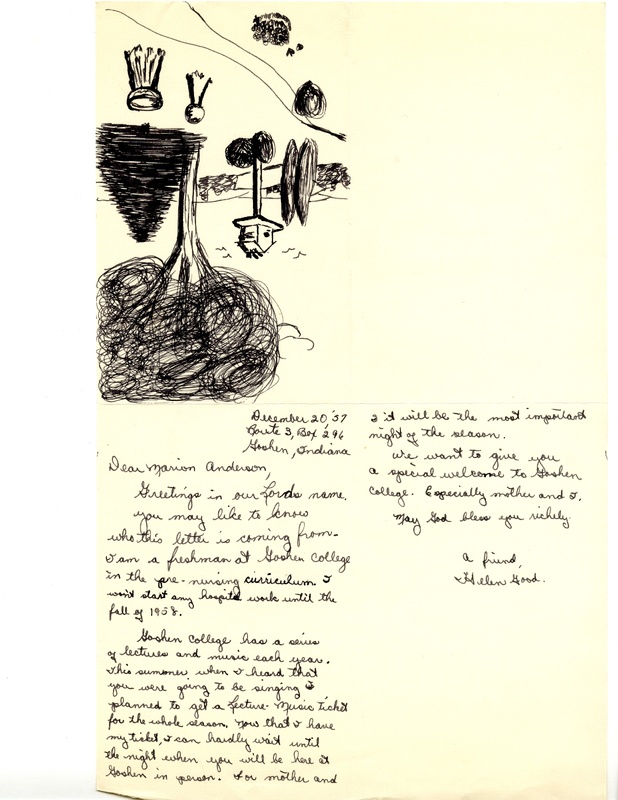 December 20 '57
Route 3, Box 296
Goshen, Indiana
Dear Marion Anderson,
Greetings in our Lords name.
you may like to know
who this letter is coming from.
I am a freshman at Goshen College
in the pre-nursing curriculum. I
won't start any hospital work until the
fall of 1958.
Goshen College has a series
of lectures and music each year.
This summer when I heard that
you were going to be singing I
planned to get a Lecture-Music ticket
for the whole season. Now that I have
my ticket, I can hardly wait until
the night when you will be here at
Goshen in person. For mother and
I it will be the most important
night of the season.
We want to give you
a special welcome to Goshen
College. Especially mother and I.
May God bless you richly.
a friend,
Helen Good.